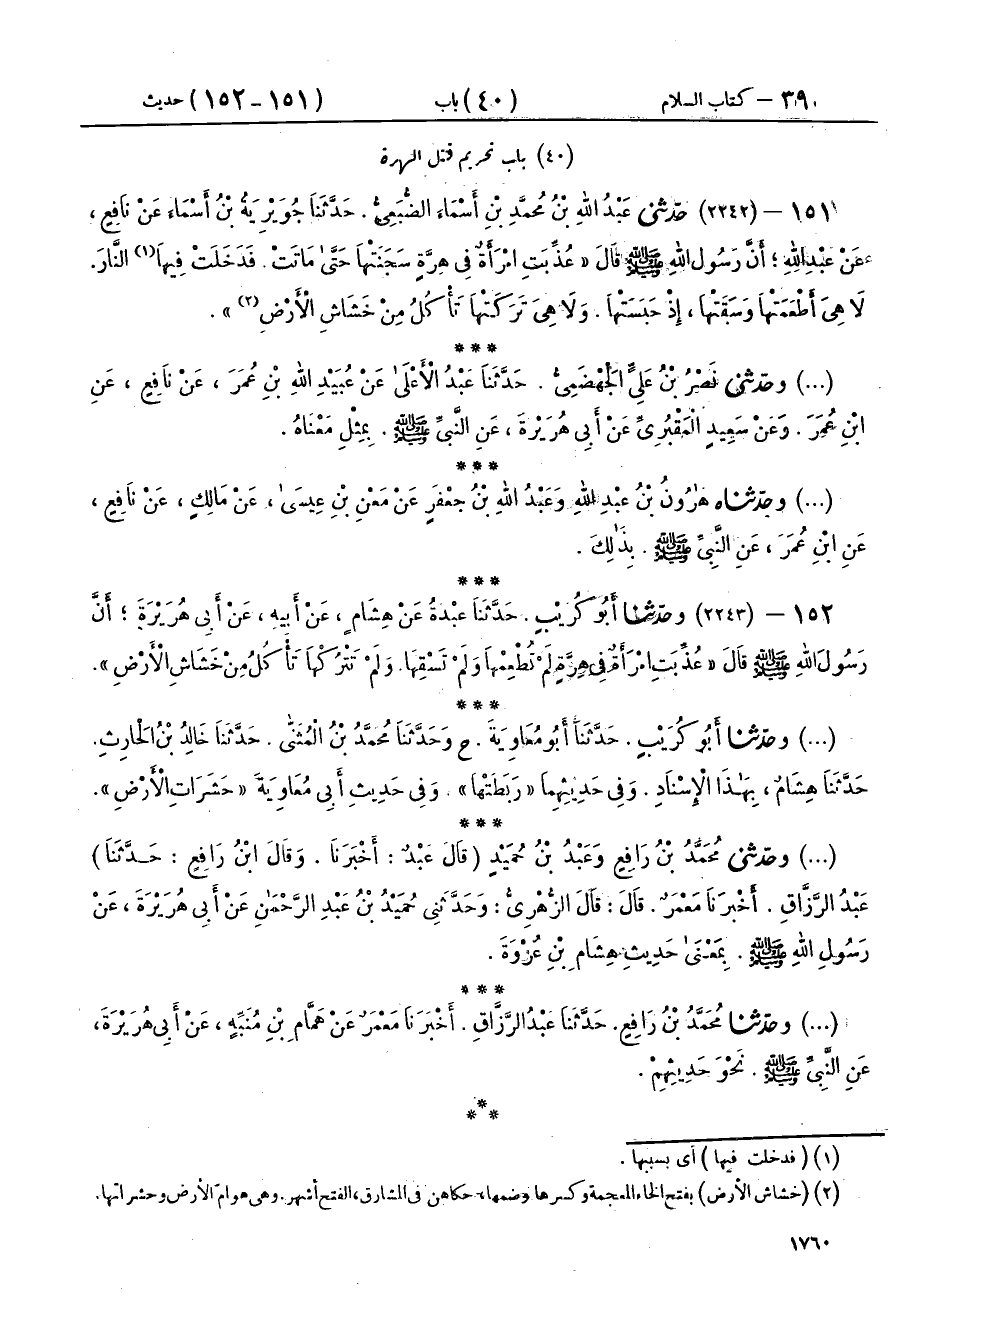 ٣٩ – كتاب السلام (٤٠) باب (١٥١ - ١٥٢) حديث
(٤٠) باب تحريم قتل الهرة
١٥١ – (٢٢٤٢) حَدَّثَنِي عَبْدُ اللهِ بْنُ مُحَمَّدِ بْنِ أَسْمَاءَ الضُّبَعِيُّ . حَدَّثَنَا جُوَيْرِيَةُ بْنُ أَسْمَاءَ عَنْ نَافِعٍ ،
عَنْ عَبْدِ اللهِ ؛ أَنَّ رَسُولَ اللهِ ﷺ قَالَ « عُذِّبَتِ امْرَأَةٌ فِي هِرَّةٍ سَجَنَتْهَا حَتَّىٰ مَاتَتْ . فَدَخَلَتْ فِيهَا(١) النَّارَ .
لَا هِيَ أَطْعَمَتْهَا وَسَقَتْهَا ، إِذْ حَبَسَتْهَا . وَلَا هِيَ تَرَكَتْهَا تَأْكُلُ مِنْ خَشَاشِ الْأَرْضِ(٢) » .
***
(...) وحَدَّثَنِي نَصْرُ بْنُ عَلِيٍّ الْجَهْضَمِيُّ . حَدَّثَنَا عَبْدُ الْأَعْلَىٰ عَنْ عُبَيْدِ اللهِ بْنِ عُمَرَ ، عَنْ نَافِعٍ ، عَنِ
ابْنِ عُمَرَ . وَعَنْ سَعِيدٍ الْمَقْبُرِيِّ عَنْ أَبِي هُرَيْرَةَ ، عَنِ النَّبِيِّ ﷺ . بِمِثْلِ مَعْنَاهُ .
***
(...) وحَدَّثَنَاه هَٰرُونُ بْنُ عَبْدِ اللهِ وَعَبْدُ اللهِ بْنُ جَعْفَرٍ عَنْ مَعْنِ بْنِ عِيسَىٰ ، عَنْ مَالِكٍ ، عَنْ نَافِعٍ ،
عَنِ ابْنِ عُمَرَ ، عَنِ النَّبِيِّ ﷺ . بِذَٰلِكَ .
***
١٥٢ – (٢٢٤٣) وحَدَّثَنَا أَبُو كُرَيْبٍ . حَدَّثَنَا عَبْدَةُ عَنْ هِشَامٍ ، عَنْ أَبِيهِ ، عَنْ أَبِي هُرَيْرَةَ ؛ أَنَّ
رَسُولَ اللهِ ﷺ قَالَ « عُذِّبَتِ امْرَأَةٌ فِي هِرَّةٍ لَمْ تُطْعِمْهَا وَلَمْ تَسْقِهَا . وَلَمْ تَتْرُكْهَا تَأْكُلُ مِنْ خَشَاشِ الْأَرْضِ » .
***
(...) وحَدَّثَنَا أَبُو كُرَيْبٍ . حَدَّثَنَا أَبُو مُعَاوِيَةَ . ح وَحَدَّثَنَا مُحَمَّدُ بْنُ الْمُثَنَّىٰ . حَدَّثَنَا خَالِدُ بْنُ الْحَارِثِ .
حَدَّثَنَا هِشَامٌ ، بِهَٰذَا الْإِسْنَادِ . وَفِي حَدِيثِهِمَا « رَبَطَتْهَا » . وَفِي حَدِيثِ أَبِي مُعَاوِيَةَ « حَشَرَاتِ الْأَرْضِ » .
***
(...) وحَدَّثَنِي مُحَمَّدُ بْنُ رَافِعٍ وَعَبْدُ بْنُ حُمَيْدٍ ( قَالَ عَبْدٌ : أَخْبَرَنَا . وَقَالَ ابْنُ رَافِعٍ : حَدَّثَنَا )
عَبْدُ الرَّزَّاقِ . أَخْبَرَنَا مَعْمَرٌ . قَالَ : قَالَ الزُّهْرِيُّ : وَحَدَّثَنِي حُمَيْدُ بْنُ عَبْدِ الرَّحْمَٰنِ عَنْ أَبِي هُرَيْرَةَ ، عَنْ
رَسُولِ اللهِ ﷺ . بِمَعْنَىٰ حَدِيثِ هِشَامِ بْنِ عُرْوَةَ .
***
(...) وحَدَّثَنَا مُحَمَّدُ بْنُ رَافِعٍ . حَدَّثَنَا عَبْدُ الرَّزَّاقِ . أَخْبَرَنَا مَعْمَرٌ عَنْ هَمَّامِ بْنِ مُنَبِّهٍ ، عَنْ أَبِي هُرَيْرَةَ ،
عَنِ النَّبِيِّ ﷺ . نَحْوَ حَدِيثِهِمْ .
***
(١) ( فدخلت فيها ) أى بسببها .
(٢) (خشاش الأرض) بفتح الخاء المعجمة وكسرها وضمها، حكاهن فى المشارق، الفتح أشهر. وهى هوامّ الأرض وحشراتها.
١٧٦٠